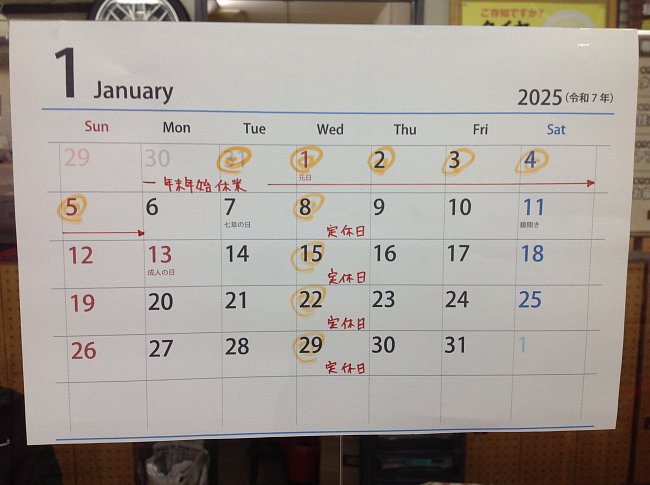 ご存知ですか?
タイヤ
1 January 2025(令和7年)
Sun Mon Tue Wed Thu Fri Sat
29 30 31 1 2 3 4
元日
年末年始休業
5 6 7 8 9 10 11
七草の日 鏡開き
定休日
12 13 14 15 16 17 18
成人の日
定休日
19 20 21 22 23 24 25
定休日
26 27 28 29 30 31 1
定休日